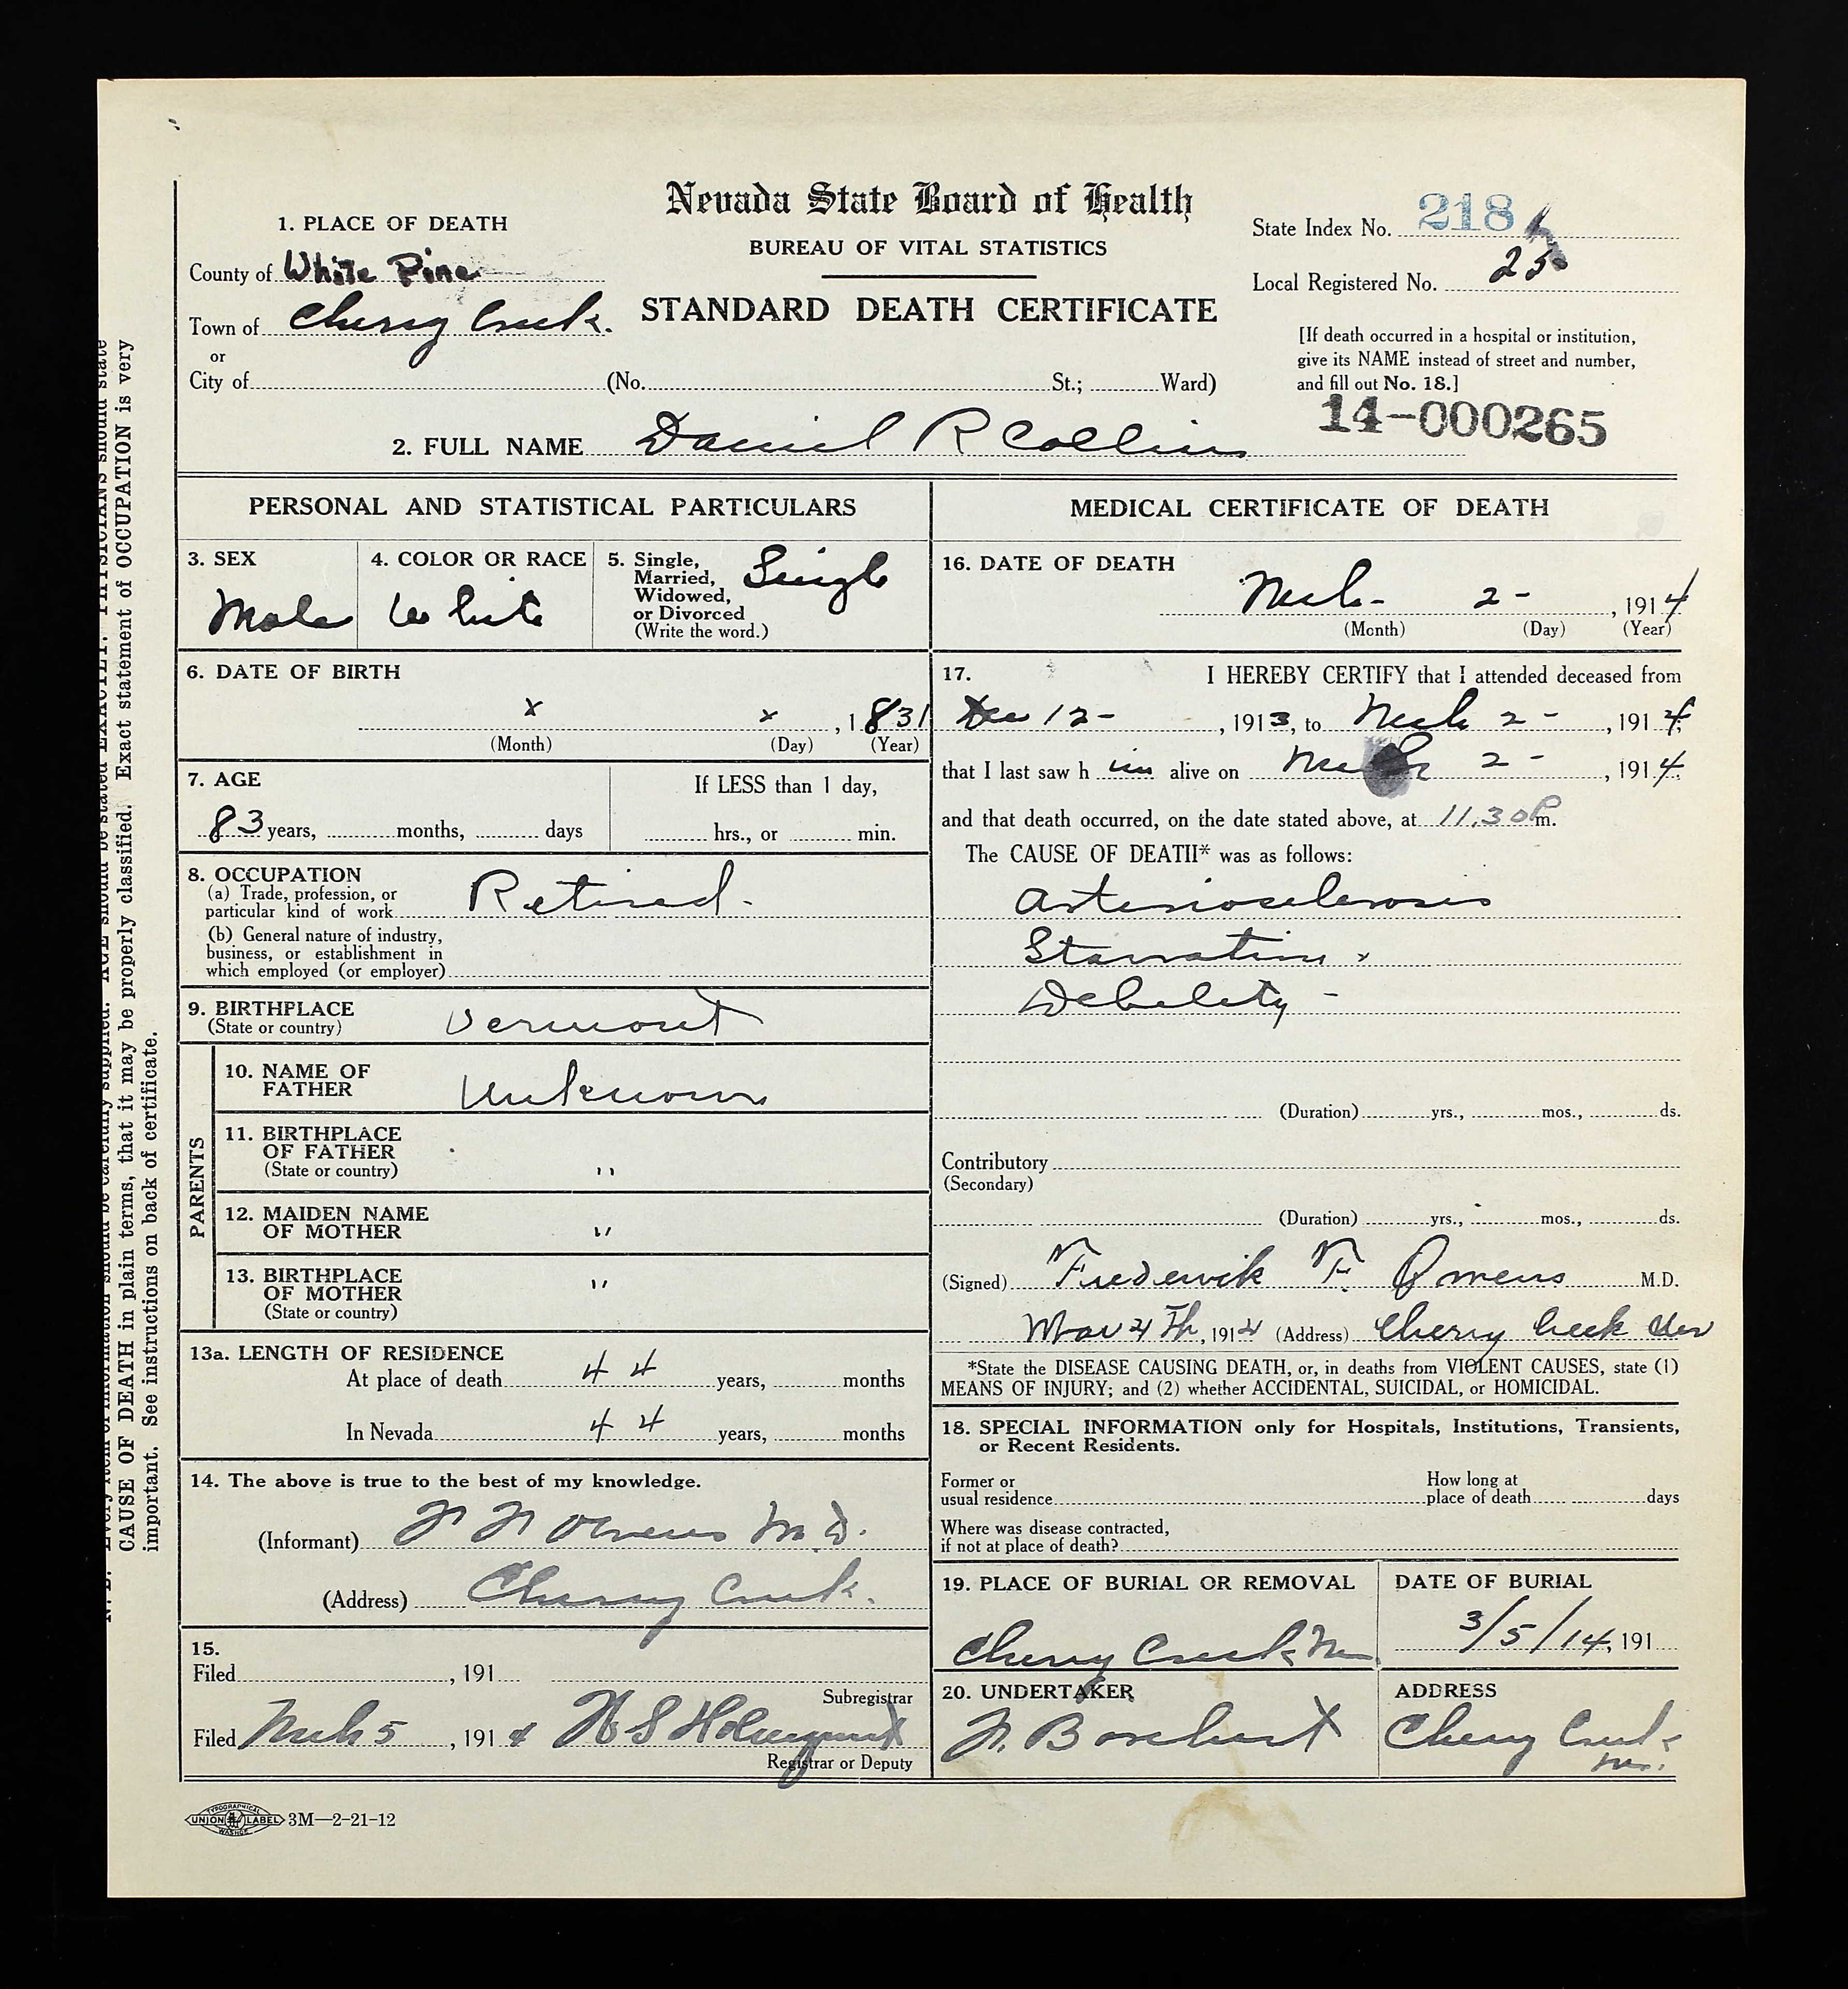 Nevada State Board of Health
BUREAU OF VITAL STATISTICS
STANDARD DEATH CERTIFICATE
State Index No. 218
Local Registered No. 25
[If death occurred in a hospital or institution,
give its NAME instead of street and number,
and fill out No. 18.]
14-000265
1. PLACE OF DEATH
County of White Pine
Town of Cherry Creek.
or
City of (No. St.; Ward)
2. FULL NAME Daniel R Collins
PERSONAL AND STATISTICAL PARTICULARS
3. SEX
Male
4. COLOR OR RACE
White
5. Single,
Married,
Widowed,
or Divorced
(Write the word.)
Single
6. DATE OF BIRTH
x x , 1831
(Month) (Day) (Year)
7. AGE
83 years, months, days
If LESS than 1 day,
hrs., or min.
8. OCCUPATION
(a) Trade, profession, or
particular kind of work Retired.
(b) General nature of industry,
business, or establishment in
which employed (or employer)
9. BIRTHPLACE
(State or country) Vermont
PARENTS
10. NAME OF
FATHER Unknown
11. BIRTHPLACE
OF FATHER
(State or country) "
12. MAIDEN NAME
OF MOTHER "
13. BIRTHPLACE
OF MOTHER "
(State or country)
13a. LENGTH OF RESIDENCE
At place of death 44 years, months
In Nevada 44 years, months
14. The above is true to the best of my knowledge.
(Informant) F F Owens M.D.
(Address) Cherry Creek.
15.
Filed , 191
Subregistrar
Filed Mch 5 , 1914 Holmquist
Registrar or Deputy
MEDICAL CERTIFICATE OF DEATH
16. DATE OF DEATH
Mch- 2- , 1914
(Month) (Day) (Year)
17. I HEREBY CERTIFY that I attended deceased from
Dec 12- , 1913, to Mch 2- , 1914,
that I last saw h im alive on Mch 2- , 1914,
and that death occurred, on the date stated above, at 11.30 P m.
The CAUSE OF DEATH* was as follows:
Arteriosclerosis
Starvation
Debility -
(Duration) yrs., mos., ds.
Contributory
(Secondary)
(Duration) yrs., mos., ds.
(Signed) Frederick F Owens M.D.
Mar 4th, 1914 (Address) Cherry Creek Nev
*State the DISEASE CAUSING DEATH, or, in deaths from VIOLENT CAUSES, state (1)
MEANS OF INJURY; and (2) whether ACCIDENTAL, SUICIDAL, or HOMICIDAL.
18. SPECIAL INFORMATION only for Hospitals, Institutions, Transients,
or Recent Residents.
Former or
usual residence
How long at
place of death days
Where was disease contracted,
if not at place of death?
19. PLACE OF BURIAL OR REMOVAL
Cherry Creek Nev
DATE OF BURIAL
3/5/14, 191
20. UNDERTAKER
Borchert
ADDRESS
Cherry Creek
Nev.
TYPOGRAPHICAL
UNION LABEL
3M—2-21-12
CAUSE OF DEATH in plain terms, that it may be properly classified. Exact statement of OCCUPATION is very
important. See instructions on back of certificate.